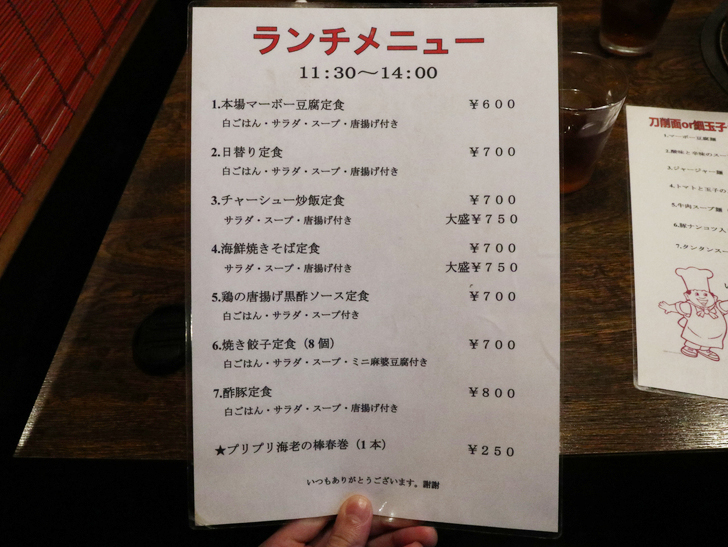 ランチメニュー
11:30～14:00
1.本場マーボー豆腐定食 ￥600
白ごはん・サラダ・スープ・唐揚げ付き
2.日替り定食 ￥700
白ごはん・サラダ・スープ・唐揚げ付き
3.チャーシュー炒飯定食 ￥700
サラダ・スープ・唐揚げ付き 大盛￥750
4.海鮮焼きそば定食 ￥700
サラダ・スープ・唐揚げ付き 大盛￥750
5.鶏の唐揚げ黒酢ソース定食 ￥700
白ごはん・サラダ・スープ付き
6.焼き餃子定食（8個） ￥700
白ごはん・サラダ・スープ・ミニ麻婆豆腐付き
7.酢豚定食 ￥800
白ごはん・サラダ・スープ・唐揚げ付き
★プリプリ海老の棒春巻（1本） ￥250
いつもありがとうございます。謝謝
刀削面or銀玉子
1.マーボー豆腐麺
2.酸味と辛味のスー
3.ジャージャー麺
4.トマトと玉子の
5.牛肉スープ麺
6.豚ナンコツ入
7.タンタンスー